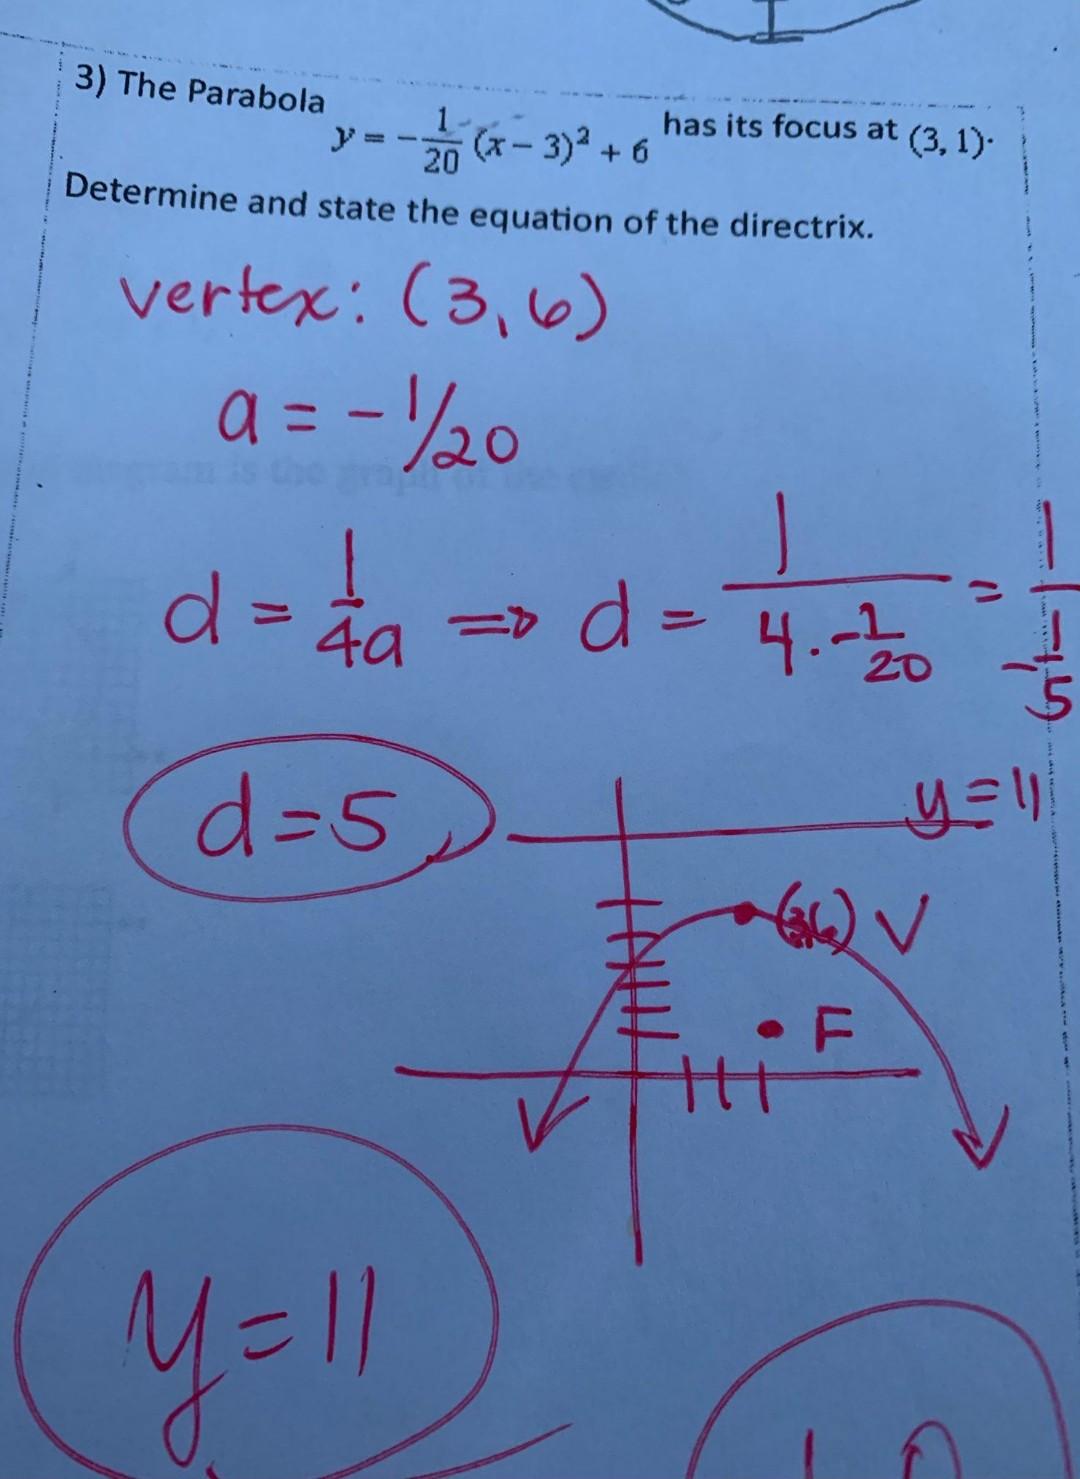 3) The Parabola y = -1/20 (x - 3)² + 6 has its focus at (3, 1).
Determine and state the equation of the directrix.
vertex: (3, 6)
a = -1/20
d = 1/4a => d = 1/(4 · -1/20) = 1/(-1/5)
d = 5
y = 11
(3,6) V
F
y = 11